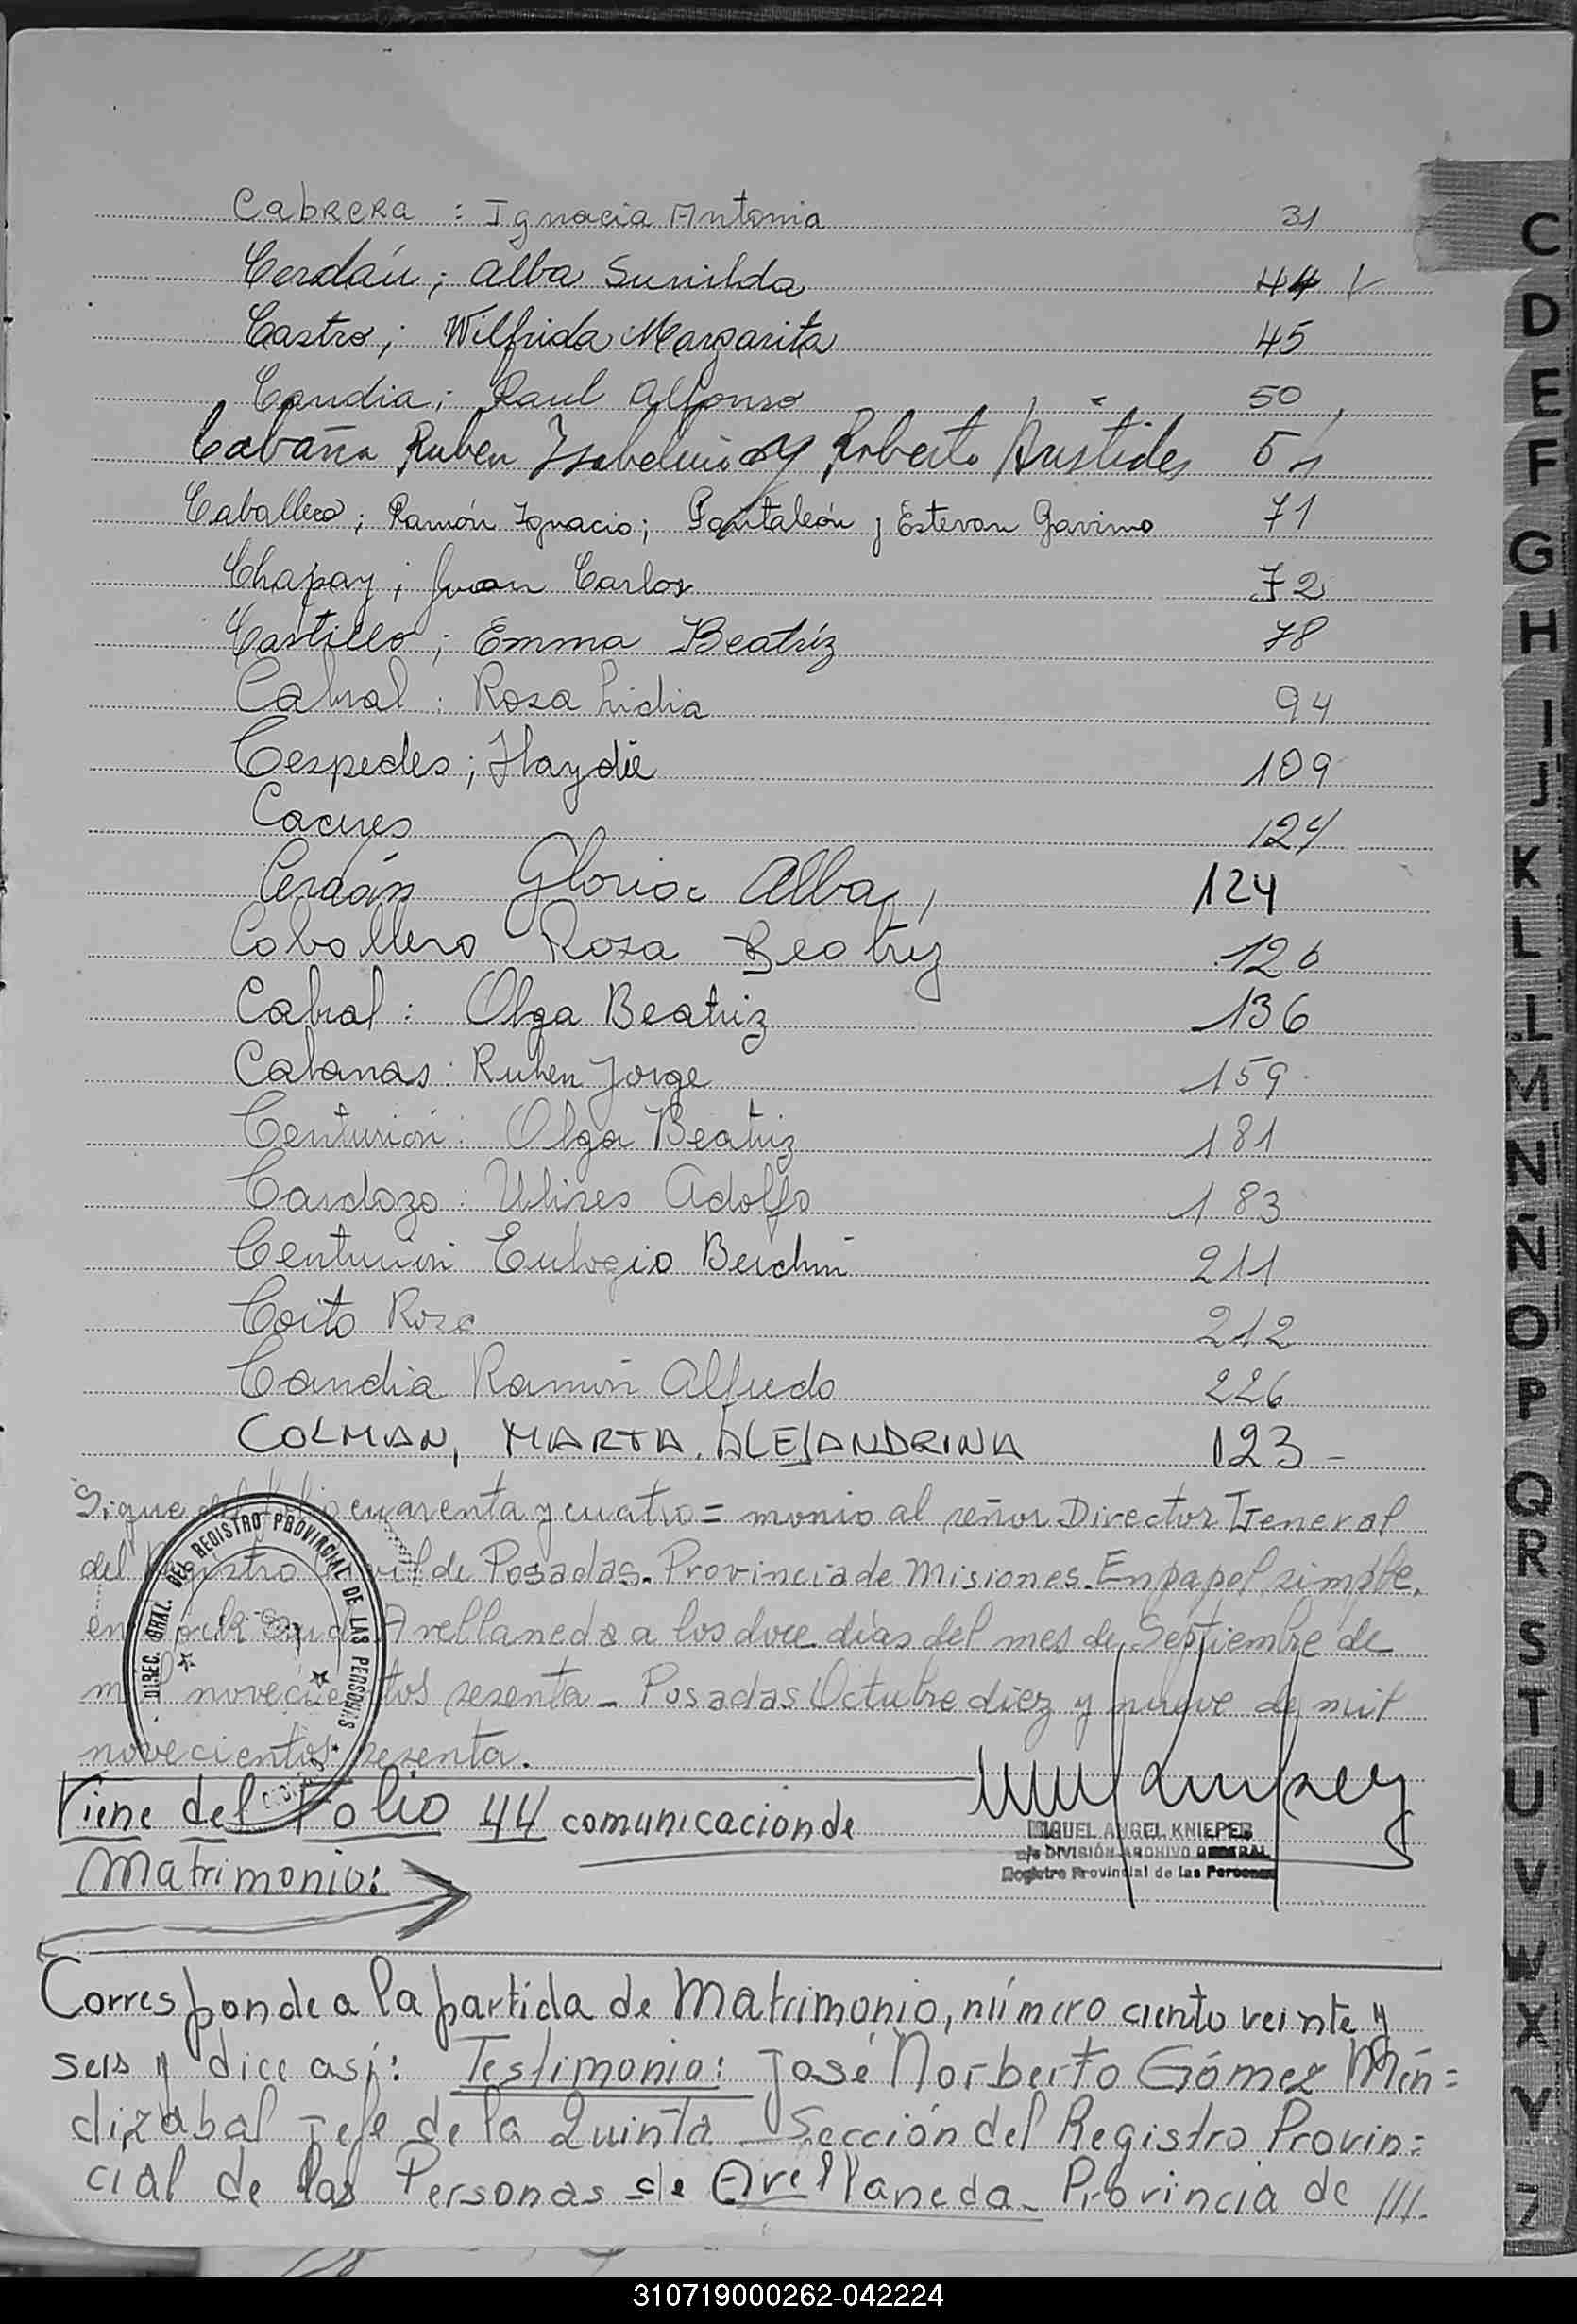 Cabrera : Ignacia Antonia 31
Cerdán; Alba Sunilda 44
Castro; Wilfrida Margarita 45
Candia; Raul Alfonso 50
Cabaña Ruben Isabelino y Roberto Aristides 51
Caballero; Ramón Ignacio; Pantaleón y Estevan Gavino 71
Chapay; Juan Carlos 72
Castillo; Emma Beatríz 78
Cabral : Rosa Lidia 94
Cespedes; Haydée 109
Caceres 124
Cerdán Gloria Alba, 124
Caballero Rosa Beatriz 126
Cabral : Olga Beatriz 136
Cabanas : Ruben Jorge 159
Centurión : Olga Beatriz 181
Cardozo : Ulises Adolfo 183
Centurión Eulogio 211
Coito Rosa 212
Candia Ramón Alfredo 226
COLMAN, MARTA ALEJANDRINA 123-
Sigue del folio cuarenta y cuatro = monio al señor Director General
del Registro Civil de Posadas. Provincia de Misiones. En papel simple,
en Avellaneda a los doce días del mes de Septiembre de
mil novecientos sesenta - Posadas Octubre diez y nueve de mil
novecientos sesenta.
Viene del Folio 44 comunicacion de
Matrimonio:
DIREC. GRAL. DEL REGISTRO PROVINCIAL DE LAS PERSONAS
MIGUEL ANGEL KNIEPER
a/c DIVISIÓN ARCHIVO GENERAL
Registro Provincial de las Personas
Corresponde a la partida de Matrimonio, número ciento veinte y
seis y dice así: Testimonio: José Norberto Gómez Men=
dizabal Jefe de la Quinta Sección del Registro Provin=
cial de las Personas de Avellaneda - Provincia de ///.
C
D
E
F
G
H
I
J
K
L
LL
M
N
Ñ
O
P
Q
R
S
T
U
V
W
X
Y
Z
310719000262-042224